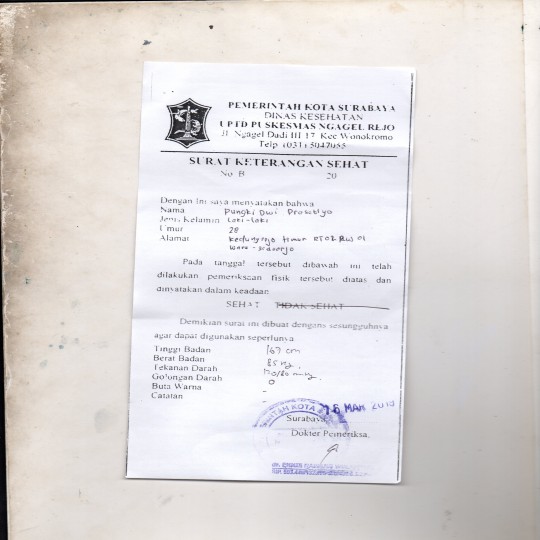 PEMERINTAH KOTA SURABAYA
DINAS KESEHATAN
UPTD PUSKESMAS NGAGEL REJO
Jl Ngagel Dadi III 17 Kec Wonokromo
Telp (031) 5047055
SURAT KETERANGAN SEHAT
No B 20
Dengan Ini saya menyatakan bahwa
Nama Pungki Dwi Prasetiyo
Jenis Kelamin Laki-laki
Umur 28
Alamat Kedungrejo timur RT 02 RW 01
Waru-Sidoarjo
Pada tanggal tersebut dibawah ini telah
dilakukan pemeriksaan fisik tersebut diatas dan
dinyatakan dalam keadaan
SEHAT TIDAK SEHAT
Demikian surat ini dibuat dengans sesungguhnya
agar dapat digunakan seperlunya
Tinggi Badan 167 cm
Berat Badan 85 kg
Tekanan Darah
Golongan Darah O
Buta Warna -
Catatan -
KOTA
MAR
Surabaya
Dokter Pemeriksa,